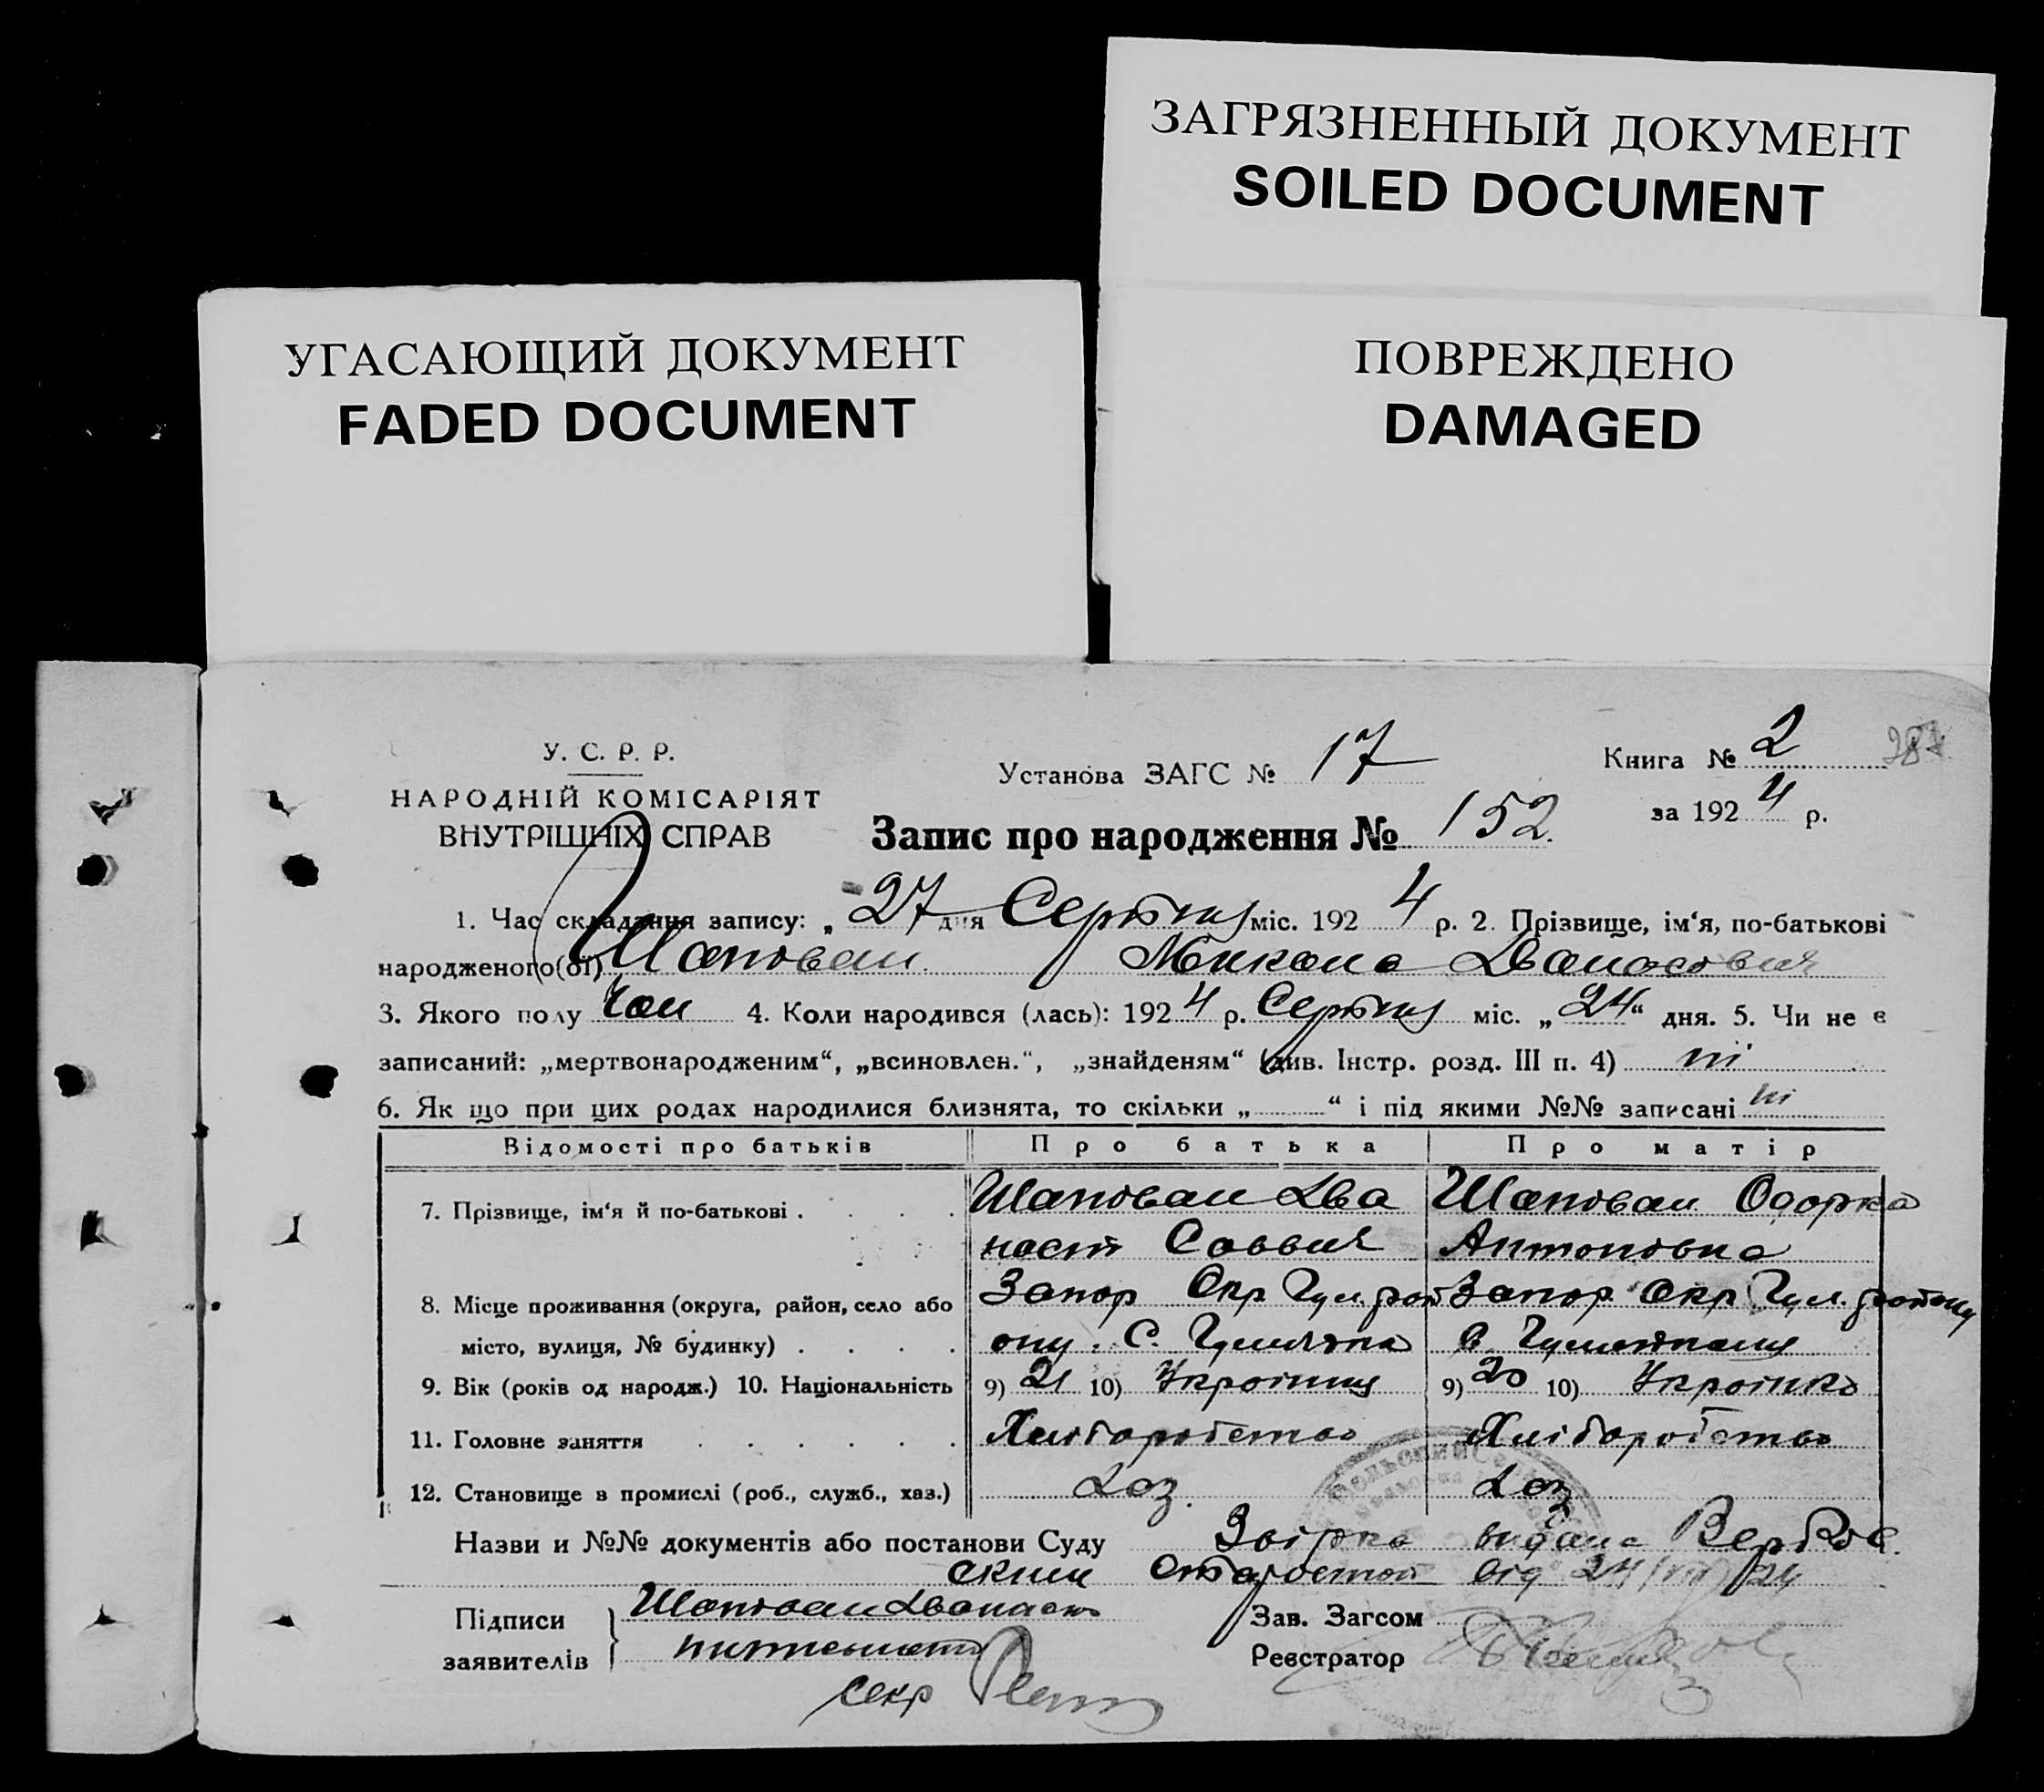 ЗАГРЯЗНЕННЫЙ ДОКУМЕНТ
SOILED DOCUMENT
УГАСАЮЩИЙ ДОКУМЕНТ
FADED DOCUMENT
ПОВРЕЖДЕНО
DAMAGED
У. С. Р. Р.
НАРОДНІЙ КОМІСАРІЯТ
ВНУТРІШНІХ СПРАВ
Установа ЗАГС № 17
Книга № 2
за 1924 р.
Запис про народження № 152.
1. Час складання запису: „ 27 дня Серпня міс. 1924 р. 2. Прізвище, ім‘я, по-батькові
народженого(ої) Шаповал Микола
3. Якого полу Чол 4. Коли народився (лась): 1924 р. Серпня міс. „ 24 “ дня. 5. Чи не є
записаний: „мертвонародженим“, „всиновлен.“, „знайденям“ (див. Інстр. розд. III п. 4) ні
6. Як що при цих родах народилися близнята, то скільки „ “ і під якими №№ записані ні
Відомості про батьків Про батька Про матір
7. Прізвище, ім‘я й по-батькові . . . . Шаповал Шаповал Одарка
Саввич Антоновна
8. Місце проживання (округа, район, село або Запор Окр Гул. рай Запор Окр Гул. району
місто, вулиця, № будинку) . . . . ону С.
9. Вік (років од народж.) 10. Національність 9) 21 10) Українец 9) 20 10) Українка
11. Головне заняття . . . . . . Хліборобство Хліборобство
12. Становище в промислі (роб., служб., хаз.)
Назви и №№ документів або постанови Суду видана Вербов
ским від 24/VIII 24
Підписи Шаповал
заявителів
Зав. Загсом
Реєстратор
секр